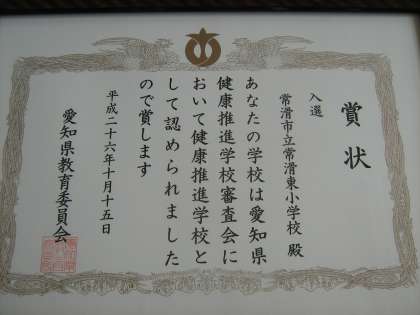 賞状
入選
常滑市立常滑東小学校 殿
あなたの学校は愛知県
健康推進学校審査会に
おいて健康推進学校と
して認められました
ので賞します
平成二十六年十月十五日
愛知県教育委員会